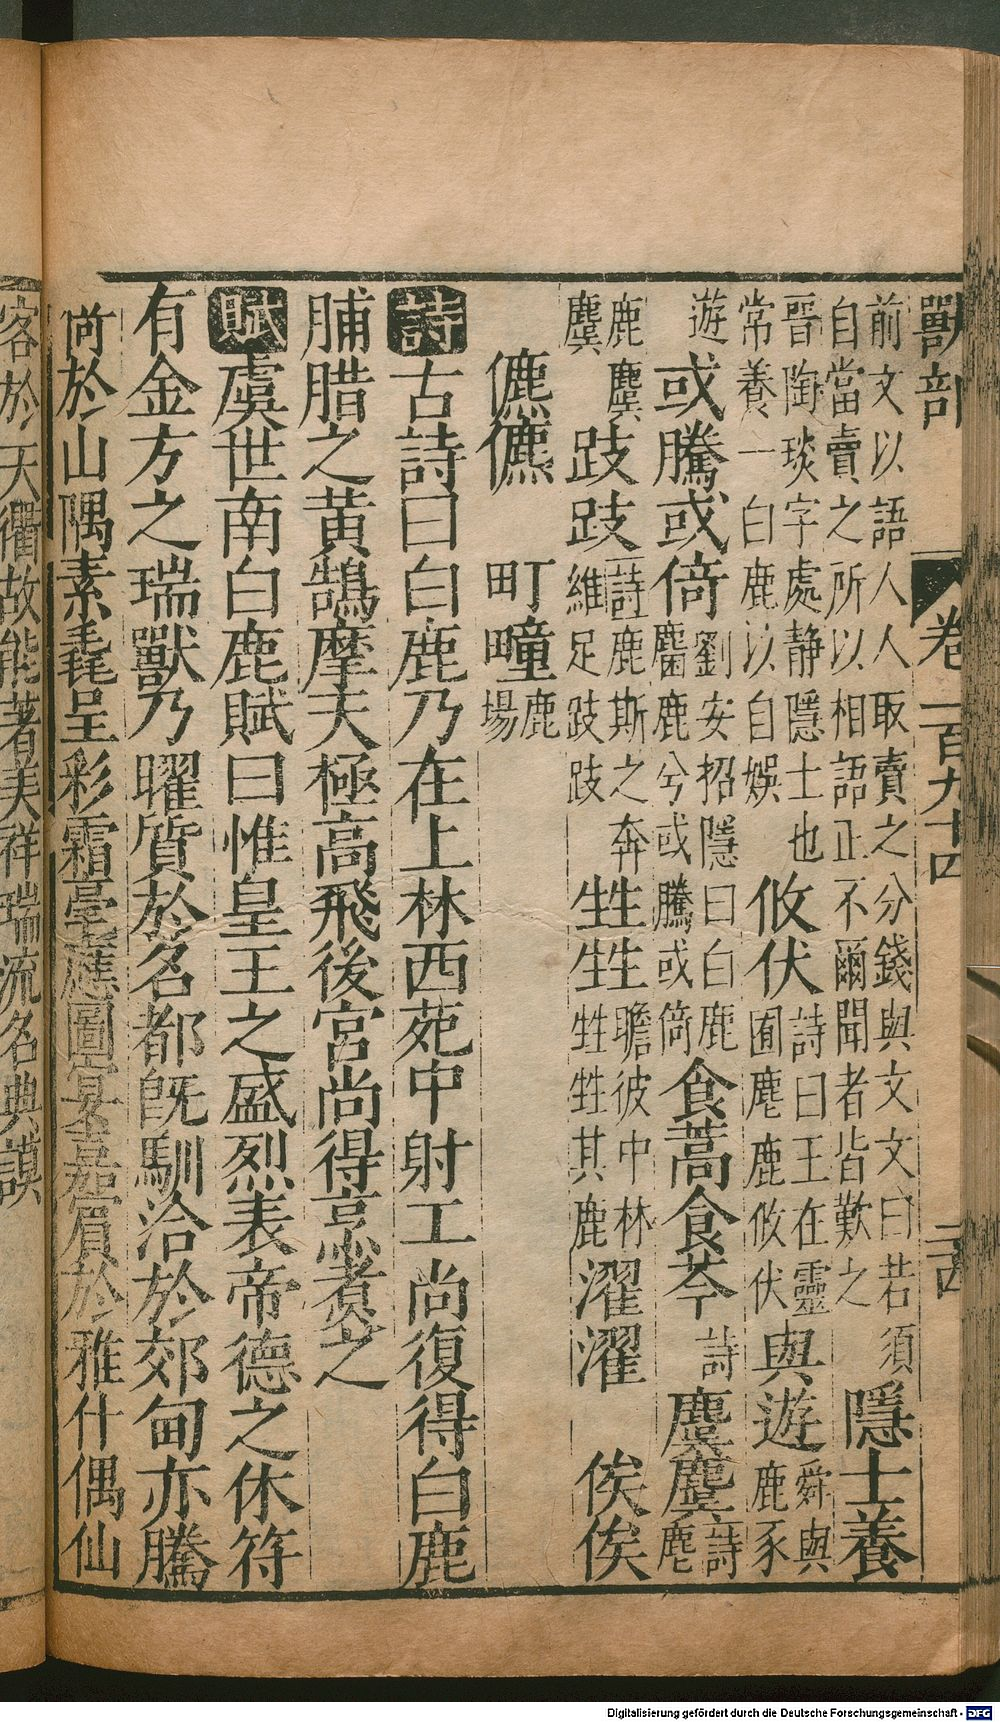 獸部 卷一百九十四 二四
前文以語人人取賣之分錢與文文曰若須
自當賣之所以相語正不爾聞者皆歎之 隱士養
晉陶琰字處静隱士也
常養一白鹿以自娛 攸伏 詩曰王在靈
囿麀鹿攸伏 與遊 舜與鹿豕
遊 或騰或倚 劉安招隱曰白鹿
麏鹿兮或騰或倚 食蒿食芩 詩 麌麌 詩麀
鹿麌
麌 跂跂 詩鹿斯之奔
維足跂跂 甡甡 瞻彼中林
甡甡其鹿 濯濯 俟俟
儦儦 町疃 鹿
場
詩 古詩曰白鹿乃在上林西苑中射工尚復得白鹿
脯腊之黄鵠摩天極高飛後宮尚得烹煮之
賦 虞世南白鹿賦曰惟皇王之盛烈表帝德之休符
有金方之瑞獸乃曜質於名都旣馴洽於郊甸亦騰
倚於山隅素毳呈彩霜毫應圖宴嘉賓於雅什偶仙
客於天衢故能著美祥瑞流名典謨
Digitalisierung gefördert durch die Deutsche Forschungsgemeinschaft - DFG